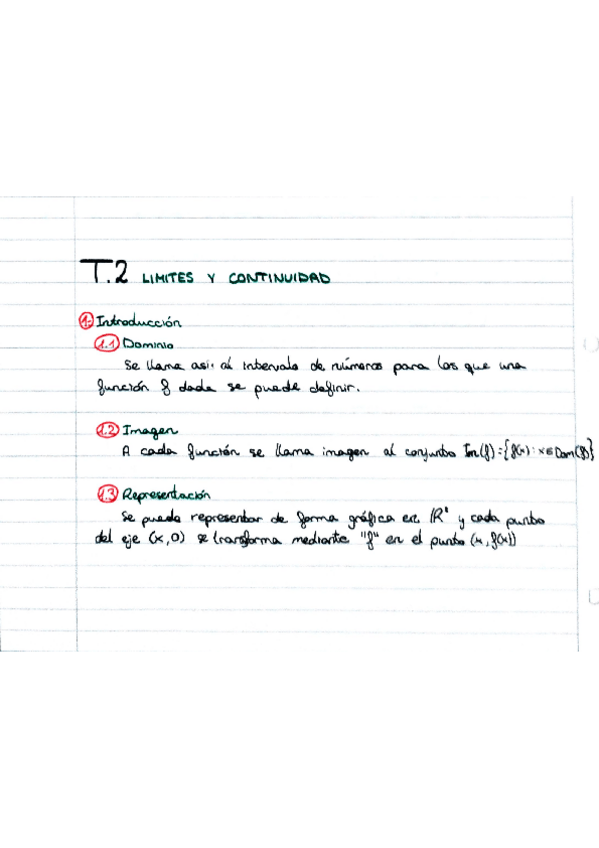 T.2 LIMITES Y CONTINUIDAD
1- Introducción
1.1 Dominio
Se llama asi al intervalo de números para los que una
función f dada se puede definir.
1.2 Imagen
A cada función se llama imagen al conjunto Im(f)={f(x): x∈Dom(f)}
1.3 Representación
Se puede representar de forma gráfica en y cada punto
del eje (x,0) se transforma mediante "f" en el punto (x, f(x))